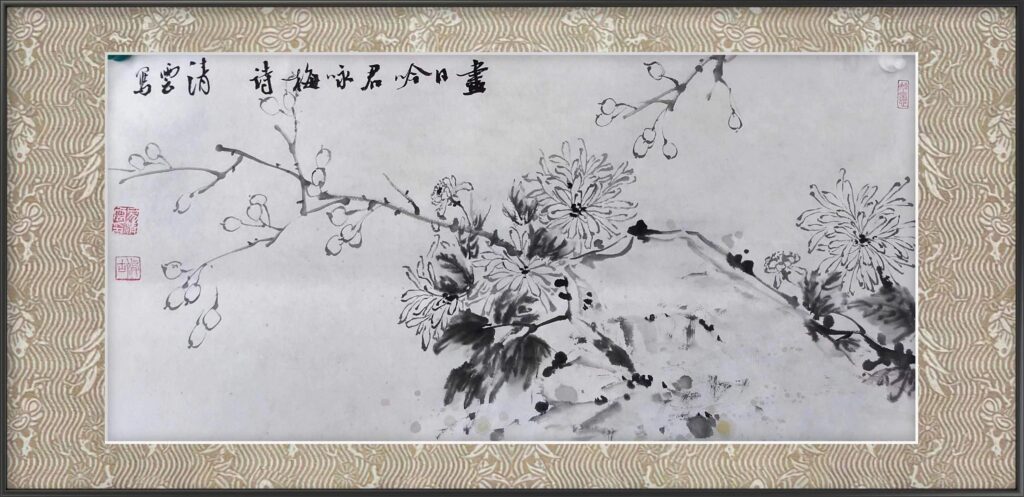 畫日吟君咏梅詩 清雲寫